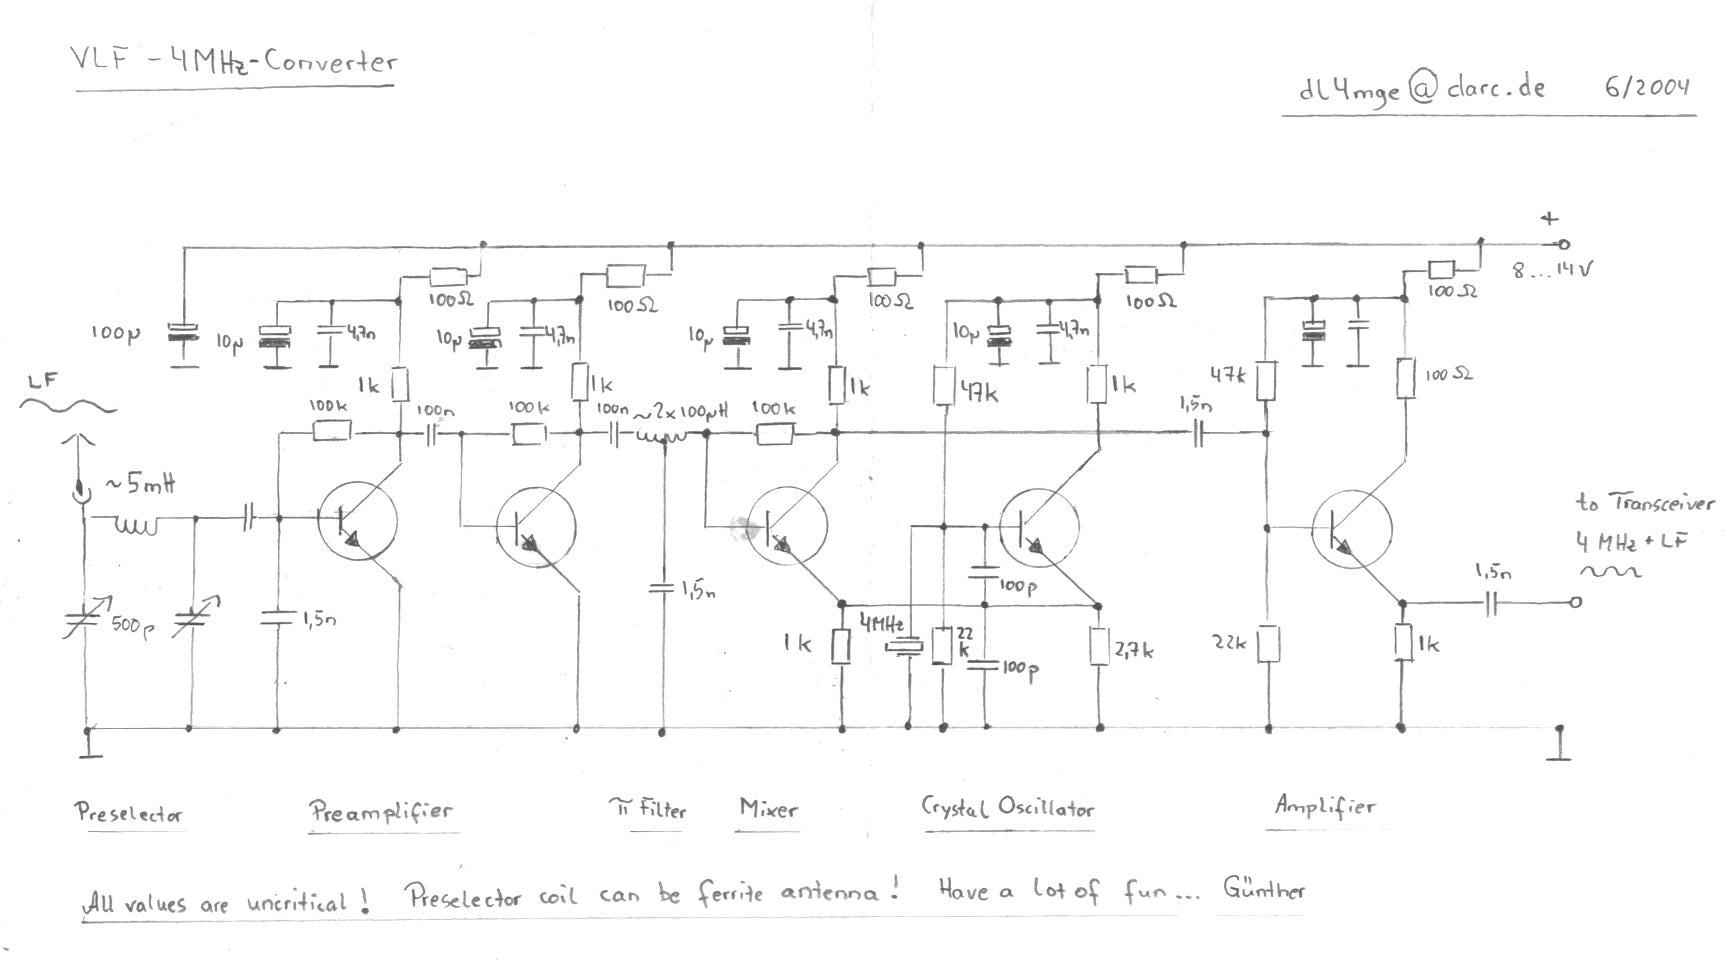 VLF - 4MHz-Converter
dl4mge@darc.de 6/2004
+
8...14V
100Ω
100Ω
100Ω
100Ω
100Ω
100µ
10µ
4,7n
10µ
4,7n
10µ
4,7n
10µ
4,7n
LF
1k
1k
1k
47k
1k
47k
100Ω
100k
100n
100k
100n
~2x100µH
100k
1,5n
~5mH
to Transceiver
4 MHz + LF
500p
1,5n
1,5n
1k
4MHz
22
k
100p
100p
2,7k
22k
1k
1,5n
Preselector
Preamplifier
π Filter
Mixer
Crystal Oscillator
Amplifier
All values are uncritical! Preselector coil can be ferrite antenna! Have a lot of fun... Günther